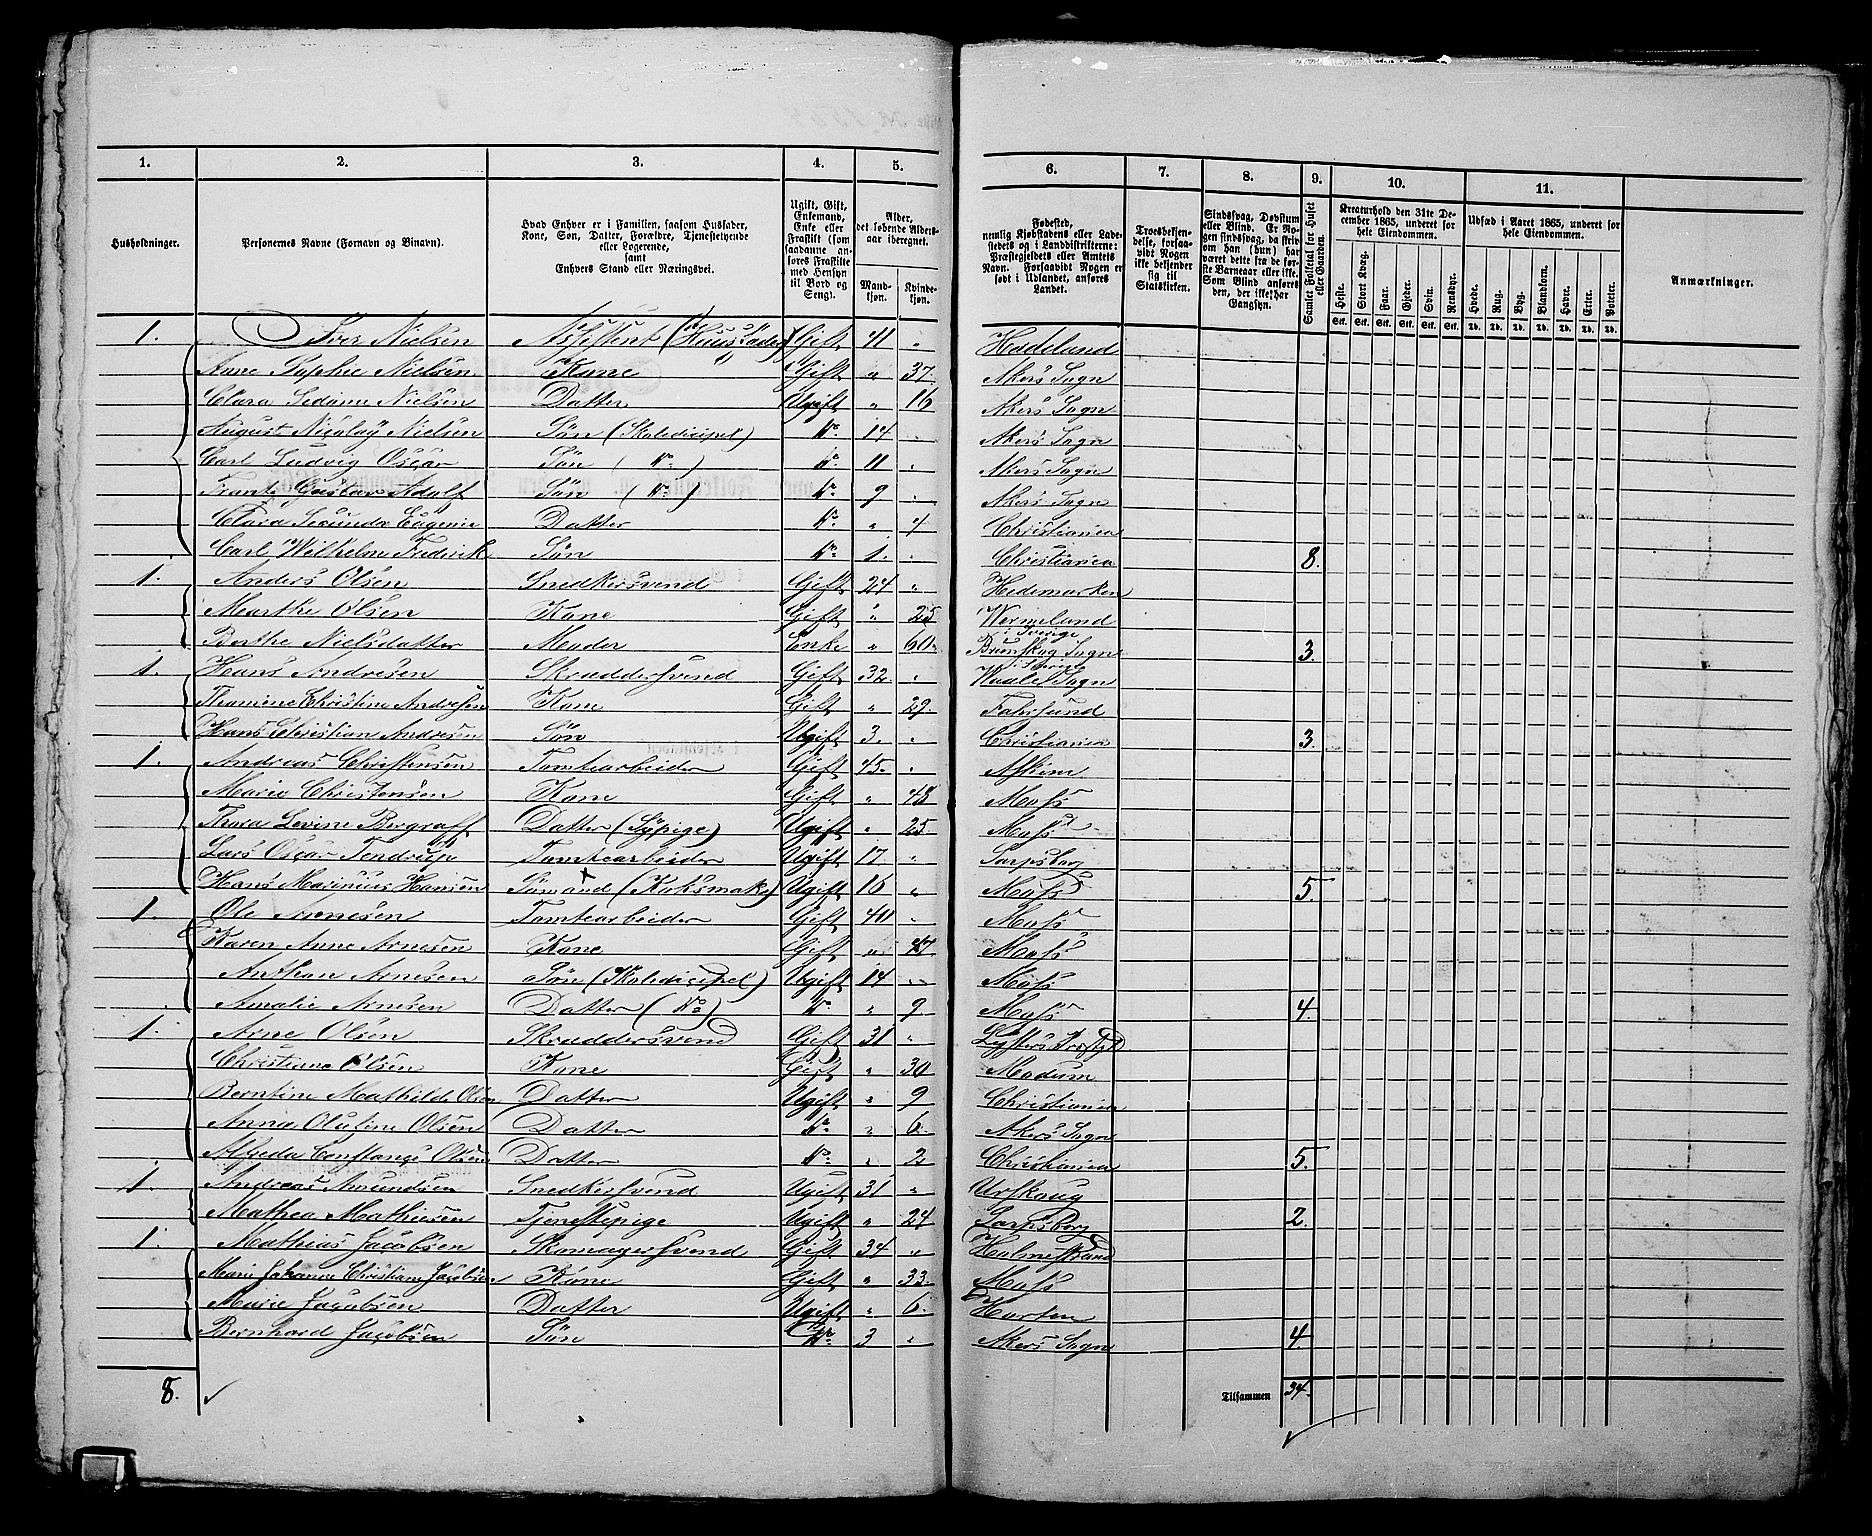 1. 2. 3. 4. 5. 6. 7. 8. 9. 10. 11.
Husholdninger.
Personernes Navne (Fornavn og Binavn).
Hvad Enhver er i Familien, saasom Husfader, Kone, Søn, Datter, Forældre, Tjenestetyende eller Logerende, samt Enhvers Stand eller Næringsvei.
Ugift, Gift, Enkemand, Enke eller Fraskilt (som saadanne anføres Fraskilte med Hensyn til Bord og Seng).
Alder, det løbende Alders-aar iberegnet.
Mand-kjøn.
Kvinde-kjøn.
Fødested, nemlig Kjøbstadens eller Ladestedets og i Landdistrikterne: Præstegjeldets eller Amtets Navn. Forsaavidt Nogen er født i Udlandet, anføres Landet.
Troesbekjendelse, forsaavidt Nogen ikke bekjender sig til Statskirken.
Sindssvag, Døvstum eller Blind. Er Nogen sindssvag, da skrives om han (hun) har været dette fra de første Barneaar eller ikke. Som Blind anføres den, der ikke har Gangsyn.
Samlet Folketal for Huset eller Gaarden.
Kreaturhold den 31te December 1865, underet for hele Eiendommen.
Heste. Stort Kvæg. Faar. Gjeder. Svin. Rensdyr.
Stk. Stk. Stk. Stk. Stk. Stk.
Udsæd i Aaret 1865, underet for hele Eiendommen.
Hvede. Rug. Byg. Blandkorn. Havre. Erter. Poteter.
Td. Td. Td. Td. Td. Td. Td.
Anmærkninger.
1. Iver Nielsen Assistent (Huusfader) Gift 41 " Hadeland
Anne Sophie Nielsen Kone Gift " 37. Akers Sogn
Clara Nielsen Datter Ugift " 16 Akers Sogn
August Nicolay Nielsen Søn (Skoledicipel) Do 14 Akers Sogn
Carl Ludvig Oscar Søn (Do) Do 11 " Akers Sogn
Frantz Gustav Adolf Søn (Do) Do 9 " Akers Sogn
Clara Secunda Eugenie Datter Do " 4 Christiania
Carl Wilhelm Fredrik Søn Do 1. " Christiania 8.
1. Anders Olsen Snedkersvend Gift 24 " Hedemarken
Marthe Olsen Kone Gift " 25 Wermeland i Sverige
Berthe Nielsdatter Moder Enke " 60. Sogn i Sverig 3.
1. Hans Andresen Skræddersvend Gift 32 " Waale Sogn
Thomine Christine Andresen Kone Gift " 29. Farsund
Hans Christian Andresen Søn Ugift 3. " Christiania 3.
1. Andreas Christensen Tomtearbeider Gift 45. " Askim
Marie Christensen Kone Gift " 48 Moss
Thora Levine Bergraff Datter (Sypige) Ugift " 25 Moss
Lars Oscar Tendrup Tomtearbeider Ugift 17. " Sarpsborg
Hans Marinius Hansen Sømand (Koksmat) Ugift 16 " Moss 5.
1. Ole Arnesen Tomtearbeider Gift 40 " Moss
Karen Anne Arnesen Kone Gift " 47 Moss
Anthon Arnesen Søn (Skoledicipel) Ugift 14 " Moss
Amalie Arnesen Datter (Do) Do " 9. Moss 4.
1. Arne Olsen Skræddersvend Gift 31 "
Christiane Olsen Kone Gift " 30 Modum
Berntine Mathilde Olsen Datter Ugift " 9 Christiania
Anna Oluline Olsen Datter Do " 6. Akers Sogn
Alfreda Constange Olsen Datter Do " 2. Christiania 5.
1. Andreas Amundsen Snedkersvend Ugift 31 " Urskoug
Mathea Mathiesen Tjenestepige Ugift " 24 Sarpsborg 2.
1. Mathias Jacobsen Skomagersvend Gift 34 " Holmestrand
Marie Johanne Christiane Jacobsen Kone Gift " 33. Moss
Marie Jacobsen Datter Ugift " 6. Horten
Bernhard Jacobsen Søn Do 3 " Akers Sogn 4.
8.
Tilsammen 34.